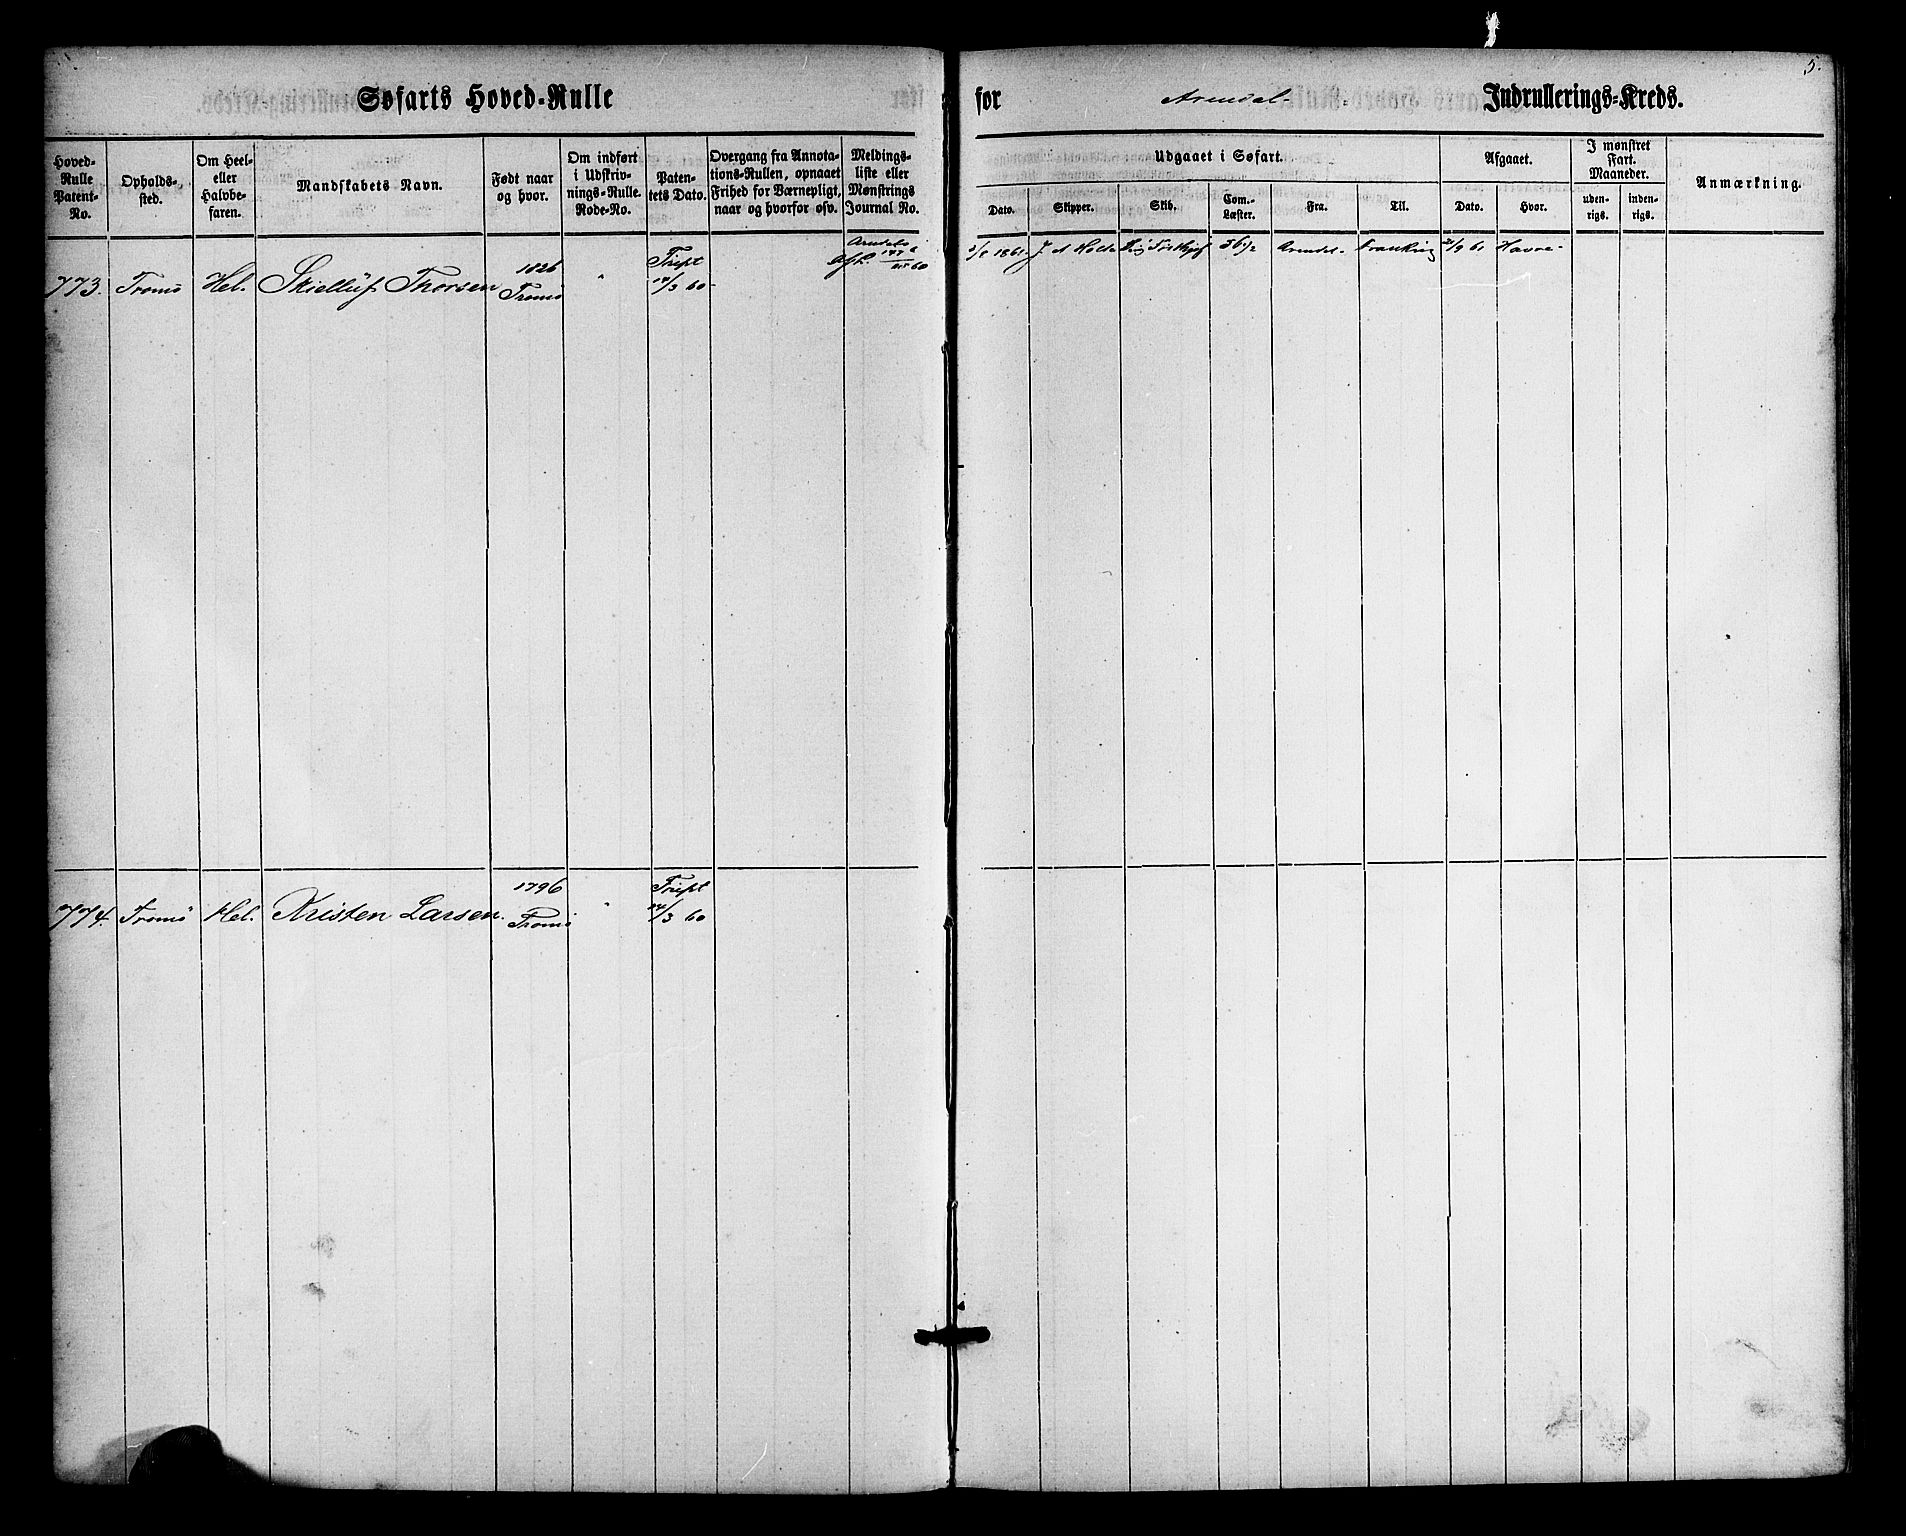 5.
Søfarts Hoved-Rulle for Arendal Indrullerings-Kreds.
Hoved-
Rulle
Patent-
No.
Opholds-
sted.
Om Heel-
eller
Halvbe-
faren.
Mandskabets Navn.
Født naar
og hvor.
Om indført
i Udskriv-
nings-Rulle.
Rode-No.
Paten-
tets Dato.
Overgang fra Annota-
tions-Rullen, opnaaet
Frihed for Værnepligt,
naar og hvorfor osv.
Meldings-
liste eller
Mønstrings
Journal No.
Udgaaet i Søfart.
Dato.
Skipper.
Skib.
Com.-
Læster.
Fra.
Til.
Afgaaet.
Dato.
Hvor.
I mønstret
Fart.
Maaneder.
uden-
rigs.
inden-
rigs.
Anmærkning.
773. Tromø Hel. Thorsen 1826 Tromø " 60
1861 J A 56 1/2 Arendal 61 Havre
774. Tromø Hel. Kristen Larsen. 1796 Tromø " 60